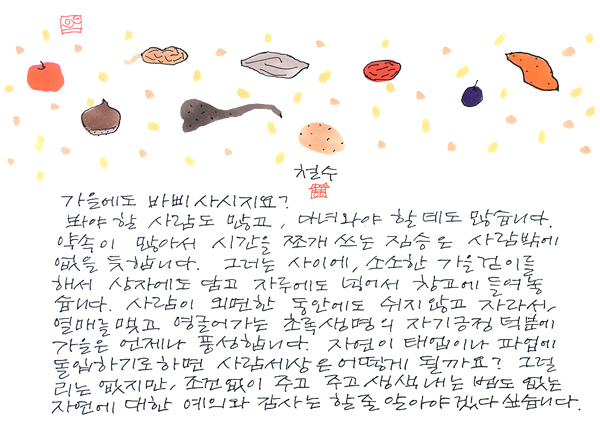 철수
가을에도 바삐 사시지요?
봐야 할 사람도 많고, 다녀와야 할 데도 많습니다.
약속이 많아서 시간을 쪼개 쓰는 짐승은 사람밖에
없을 듯합니다. 그러는 사이에, 소소한 가을걷이를
해서 상자에도 담고 자루에도 넣어서 창고에 들여놓
습니다. 사람이 외면한 동안에도 쉬지 않고 자라서,
열매를 맺고 영글어가는 초록생명의 자기긍정 덕분에
가을은 언제나 풍성합니다. 자연이 태업이나 파업에
돌입하기로 하면 사람세상은 어떻게 될까요? 그럴
리는 없지만, 조건없이 주고 주고 생색내는 법도 없는
자연에 대한 예의와 감사는 할 줄 알아야겠다 싶습니다.